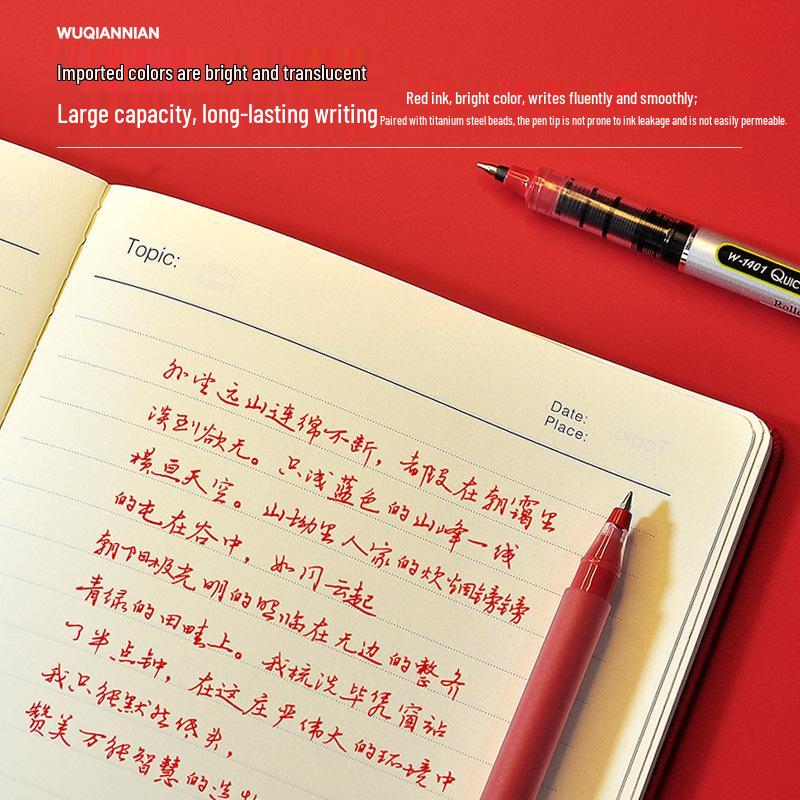 WUQIANNIAN
Imported colors are bright and translucent
Large capacity, long-lasting writing
Red ink, bright color, writes fluently and smoothly;
Paired with titanium steel beads, the pen tip is not prone to ink leakage and is not easily permeable.
W-1401 QUIC
Rolle
Topic:
Date:
Place:
外望远山连绵不断，都假在朝霭里
淡到欲无。只浅蓝色的山峰一线
横亘天空。山坳里人家的炊烟镑镑
的屯在谷中，如同云起
朝阳极光明的照临在无边的整齐
青绿的田畦上。我梳洗毕凭窗站
了半点钟，在这庄严伟大的环境中
我只能默然低头，
赞美万能智慧的造物